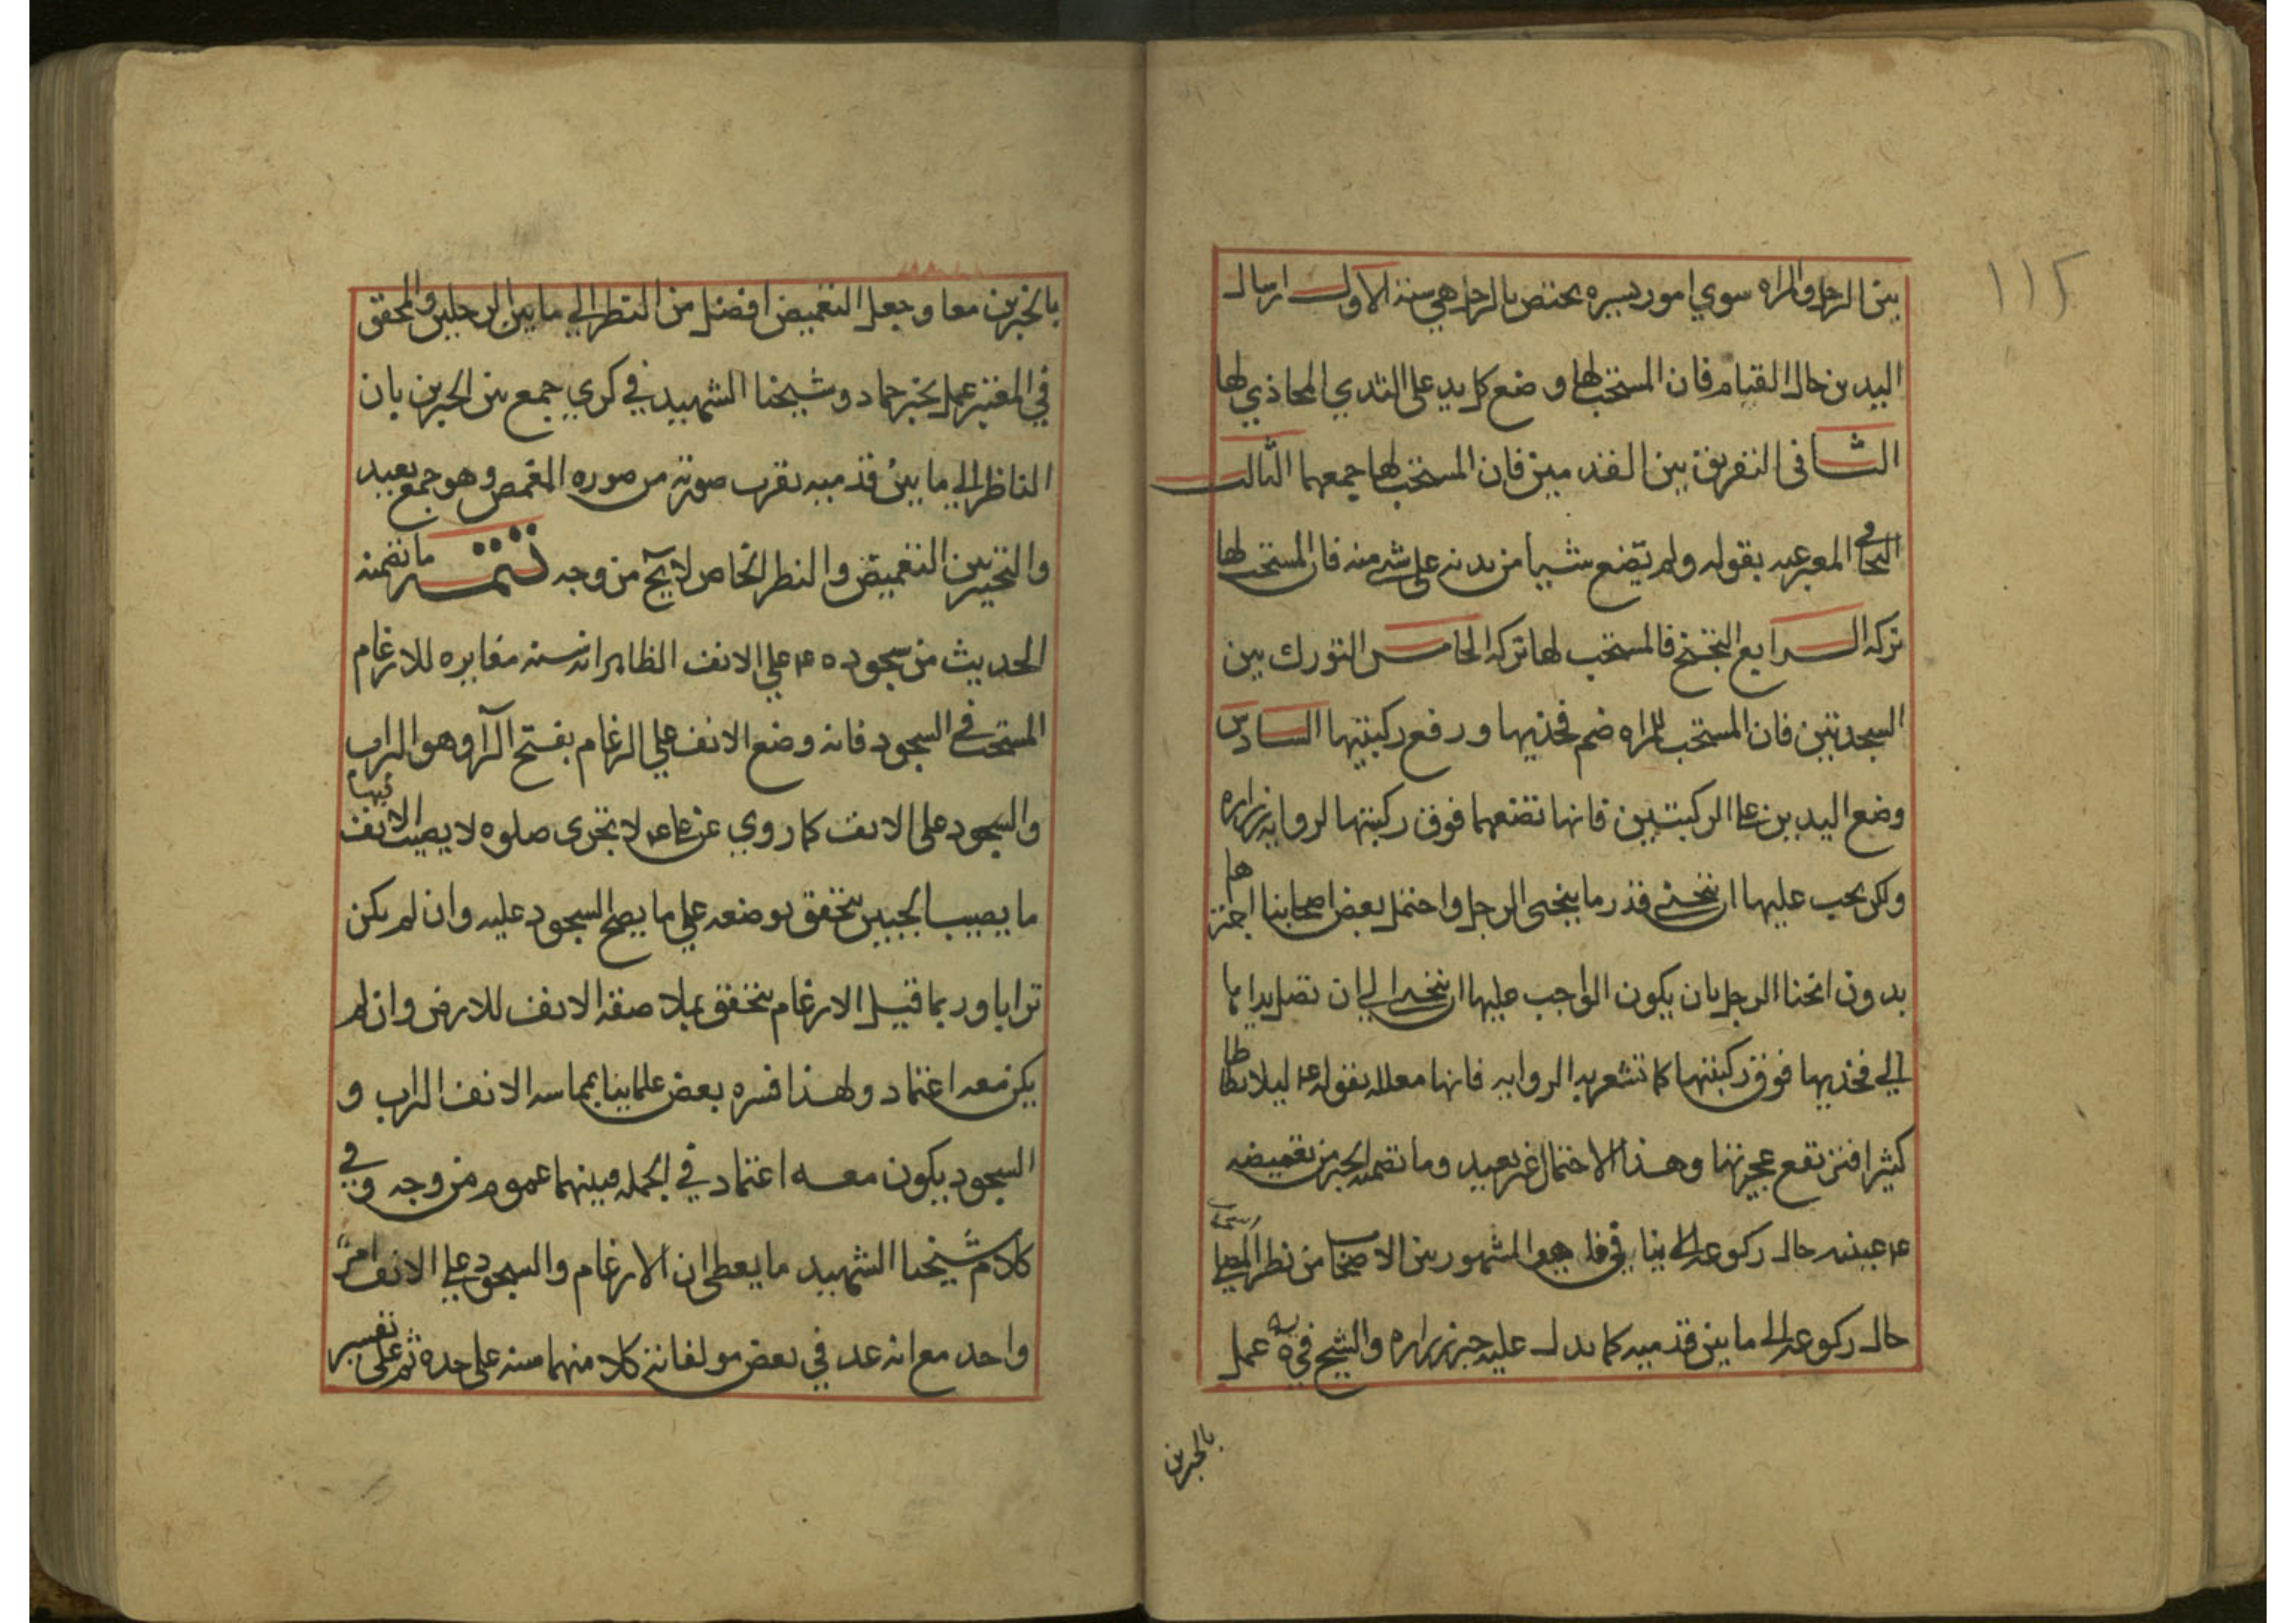 ١١٢
بين الرجل والمراه سوي امور يسيره يختص بالرجل هي ستة الاول ارسال
اليدين حال القيام فان المستحب لها وضع كل يد على الثدي المحاذي لها
الثانى التفريق بين القدمين فان المستحب لها جمعهما الثالث
التجافي المعبر عنه بقوله ولم يضع شيا من بدنه على شي منه فان المستحب لها
تركه الرابع التجنح فالمستحب لها تركه الخامس التورك بين
السجدتين فان المستحب للمراه ضم فخذيها ورفع ركبتيها السادس
وضع اليدين على الركبتين فانها تضعهما فوق ركبتها لروايه زراره
ولكن يجب عليها ان تنحنى قدر ما ينحنى الرجل واحتمل بعض اصحابنا اجتزاها
بدون انحنا الرجل بان يكون الواجب عليها ان تنحنى الي ان تصل يداها
الي فخذيها فوق ركبتها كما تشعر به الروايه فانها معلله بقوله ع ليلا تطاطا
كثيرا فترتفع عجيزتها وهذا الاحتمال غير بعيد وما تضمنه الخبر من تغميضه
ع عينيه حال ركوعه لا ينافي ما هو المشهور بين الاصحاب من نظر المصلي
حال ركوعه الى ما بين قدميه كما يدل عليه خبر زراره والشيخ في يه عمل
بالخبرين
بالخبرين معا وجعل التغميض افضل من النظر الي ما بين الرجلين والمحقق
في المعتبر عمل بخبر حماد وشيخنا الشهيد في كري جمع بين الخبرين بان
الناظر الي ما بين قدميه يقرب صورته من صوره المغمض وهو جمع بعيد
والتخيير بين التغميض والنظر الخاص لا يخ من وجه تتمه ما تضمنه
الحديث من سجوده ع علي الانف الظاهر انه سنه مغايره للارغام
المستحب في السجود فانه وضع الانف علي الرغام بفتح الرا وهو التراب
والسجود على الانف كما روي عن على ع لا تجزى صلوه لا يصيب الانف فيها
ما يصيب الجبين يتحقق بوضعه علي ما يصح السجود عليه وان لم يكن
ترابا وربما قيل الارغام يتحقق بملاصقة الانف للارض وان لم
يكن معه اعتماد ولهذا فسره بعض علماينا بمماسه الانف التراب و
السجود يكون معه اعتماد في الجمله فبينهما عموم من وجه وفي
كلام شيخنا الشهيد ما يعطي ان الارغام والسجود علي الانف امر
واحد مع انه عد في بعض مولفاته كلا منهما سنه على حده ثم على تفسير